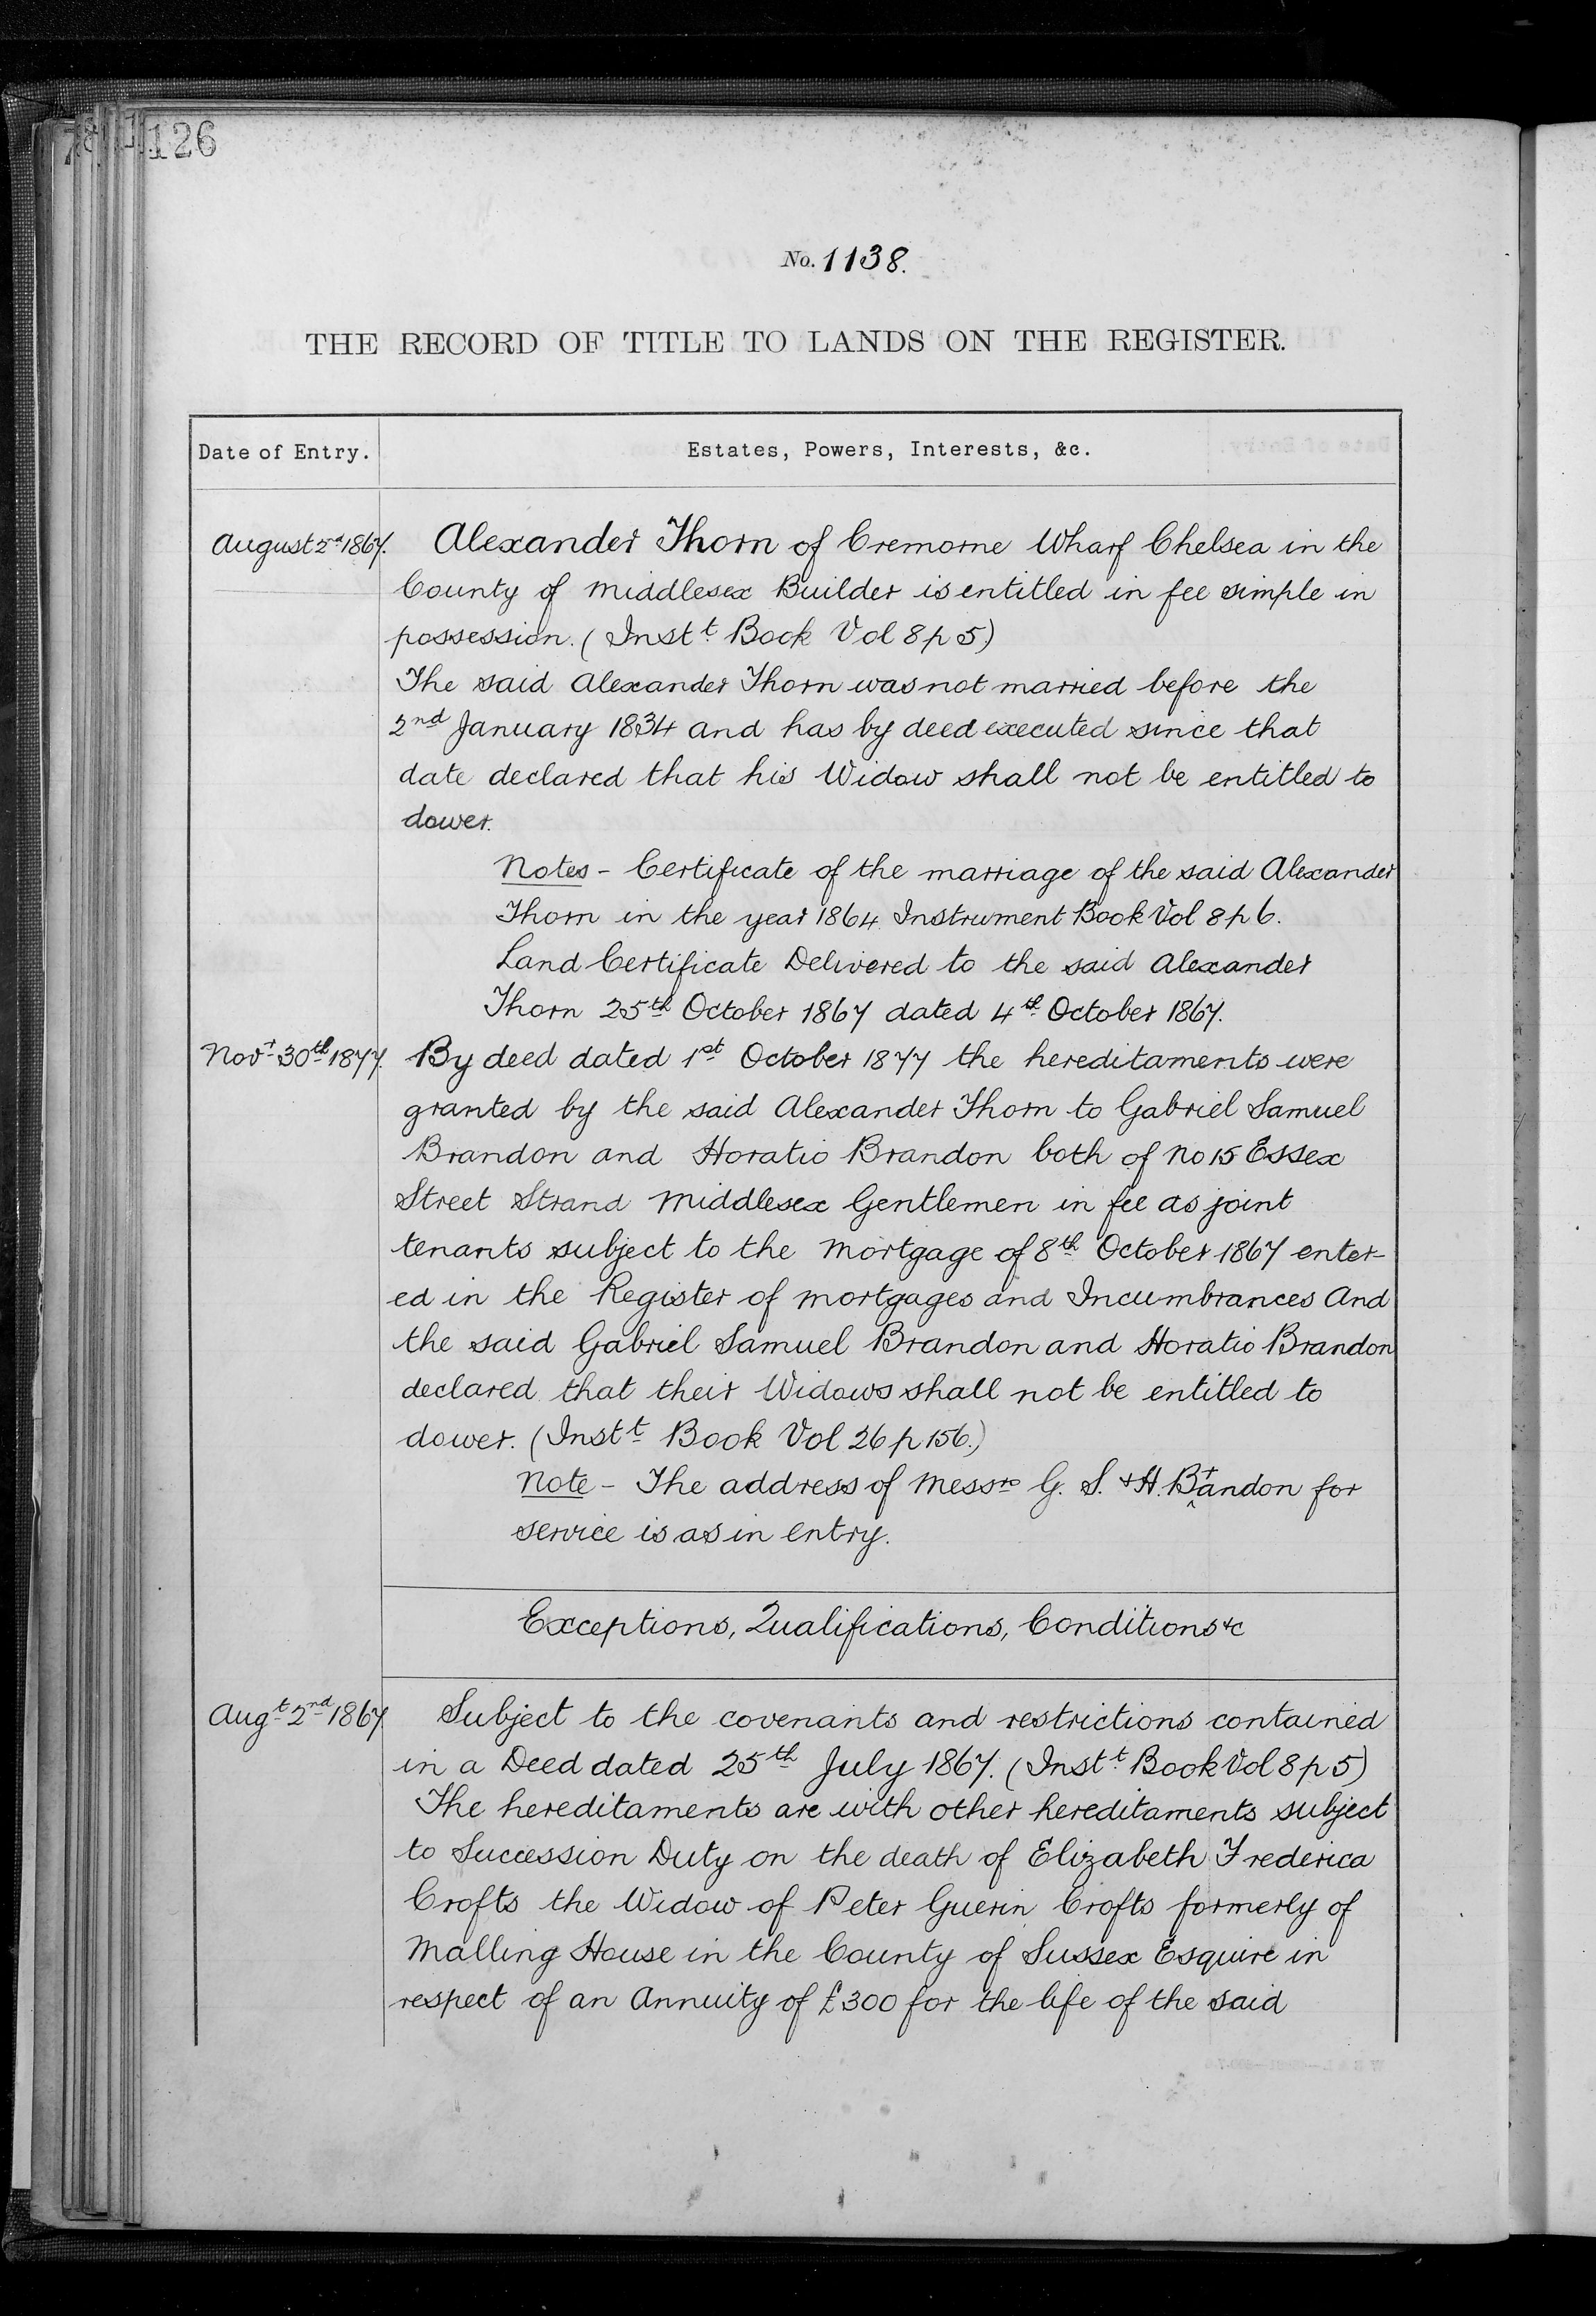 126
No. 1138.
THE RECORD OF TITLE TO LANDS ON THE REGISTER.
Date of Entry.
Estates, Powers, Interests, &c.
August 2d 1867.
Alexander Thorn of Cremorne Wharf Chelsea in the
County of Middlesex Builder is entitled in fee simple in
possession. (Instt Book Vol 8 p 5)
The said Alexander Thorn was not married before the
2nd January 1834 and has by deed executed since that
date declared that his Widow shall not be entitled to
dower.
Notes - Certificate of the marriage of the said Alexander
Thorn in the year 1864 Instrument Book Vol 8 p 6.
Land Certificate Delivered to the said Alexander
Thorn 25th October 1867 dated 4th October 1867.
Novr 30th 1877.
By deed dated 1st October 1877 the hereditaments were
granted by the said Alexander Thorn to Gabriel Samuel
Brandon and Horatio Brandon both of No 15 Essex
Street Strand Middlesex Gentlemen in fee as joint
tenants subject to the Mortgage of 8th October 1867 enter-
ed in the Register of Mortgages and Incumbrances And
the said Gabriel Samuel Brandon and Horatio Brandon
declared that their Widows shall not be entitled to
dower. (Instt Book Vol 26 p 156.)
Note - The address of Messrs G. S. & H. Brandon for
service is as in entry.
Exceptions, Qualifications, Conditions &c
Augt 2nd 1867
Subject to the covenants and restrictions contained
in a Deed dated 25th July 1867. (Instt Book Vol 8 p 5)
The hereditaments are with other hereditaments subject
to Succession Duty on the death of Elizabeth Frederica
Crofts the Widow of Peter Guerin Crofts formerly of
Malling House in the County of Sussex Esquire in
respect of an Annuity of £300 for the life of the said